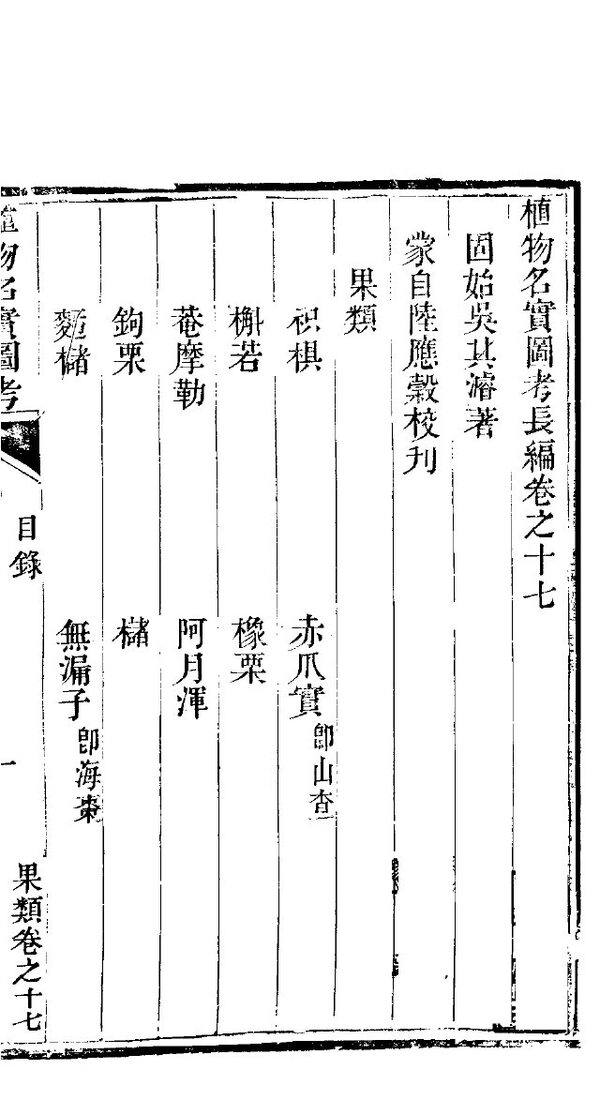 植物名實圖考長編卷之十七
固始吳其濬著
蒙自陸應穀校刋
果類
枳椇
赤爪實即山查
槲若
橡栗
菴摩勒
阿月渾
鉤栗
櫧
麪櫧
無漏子即海棗
植物名實圖考
目錄
一
果類卷之十七